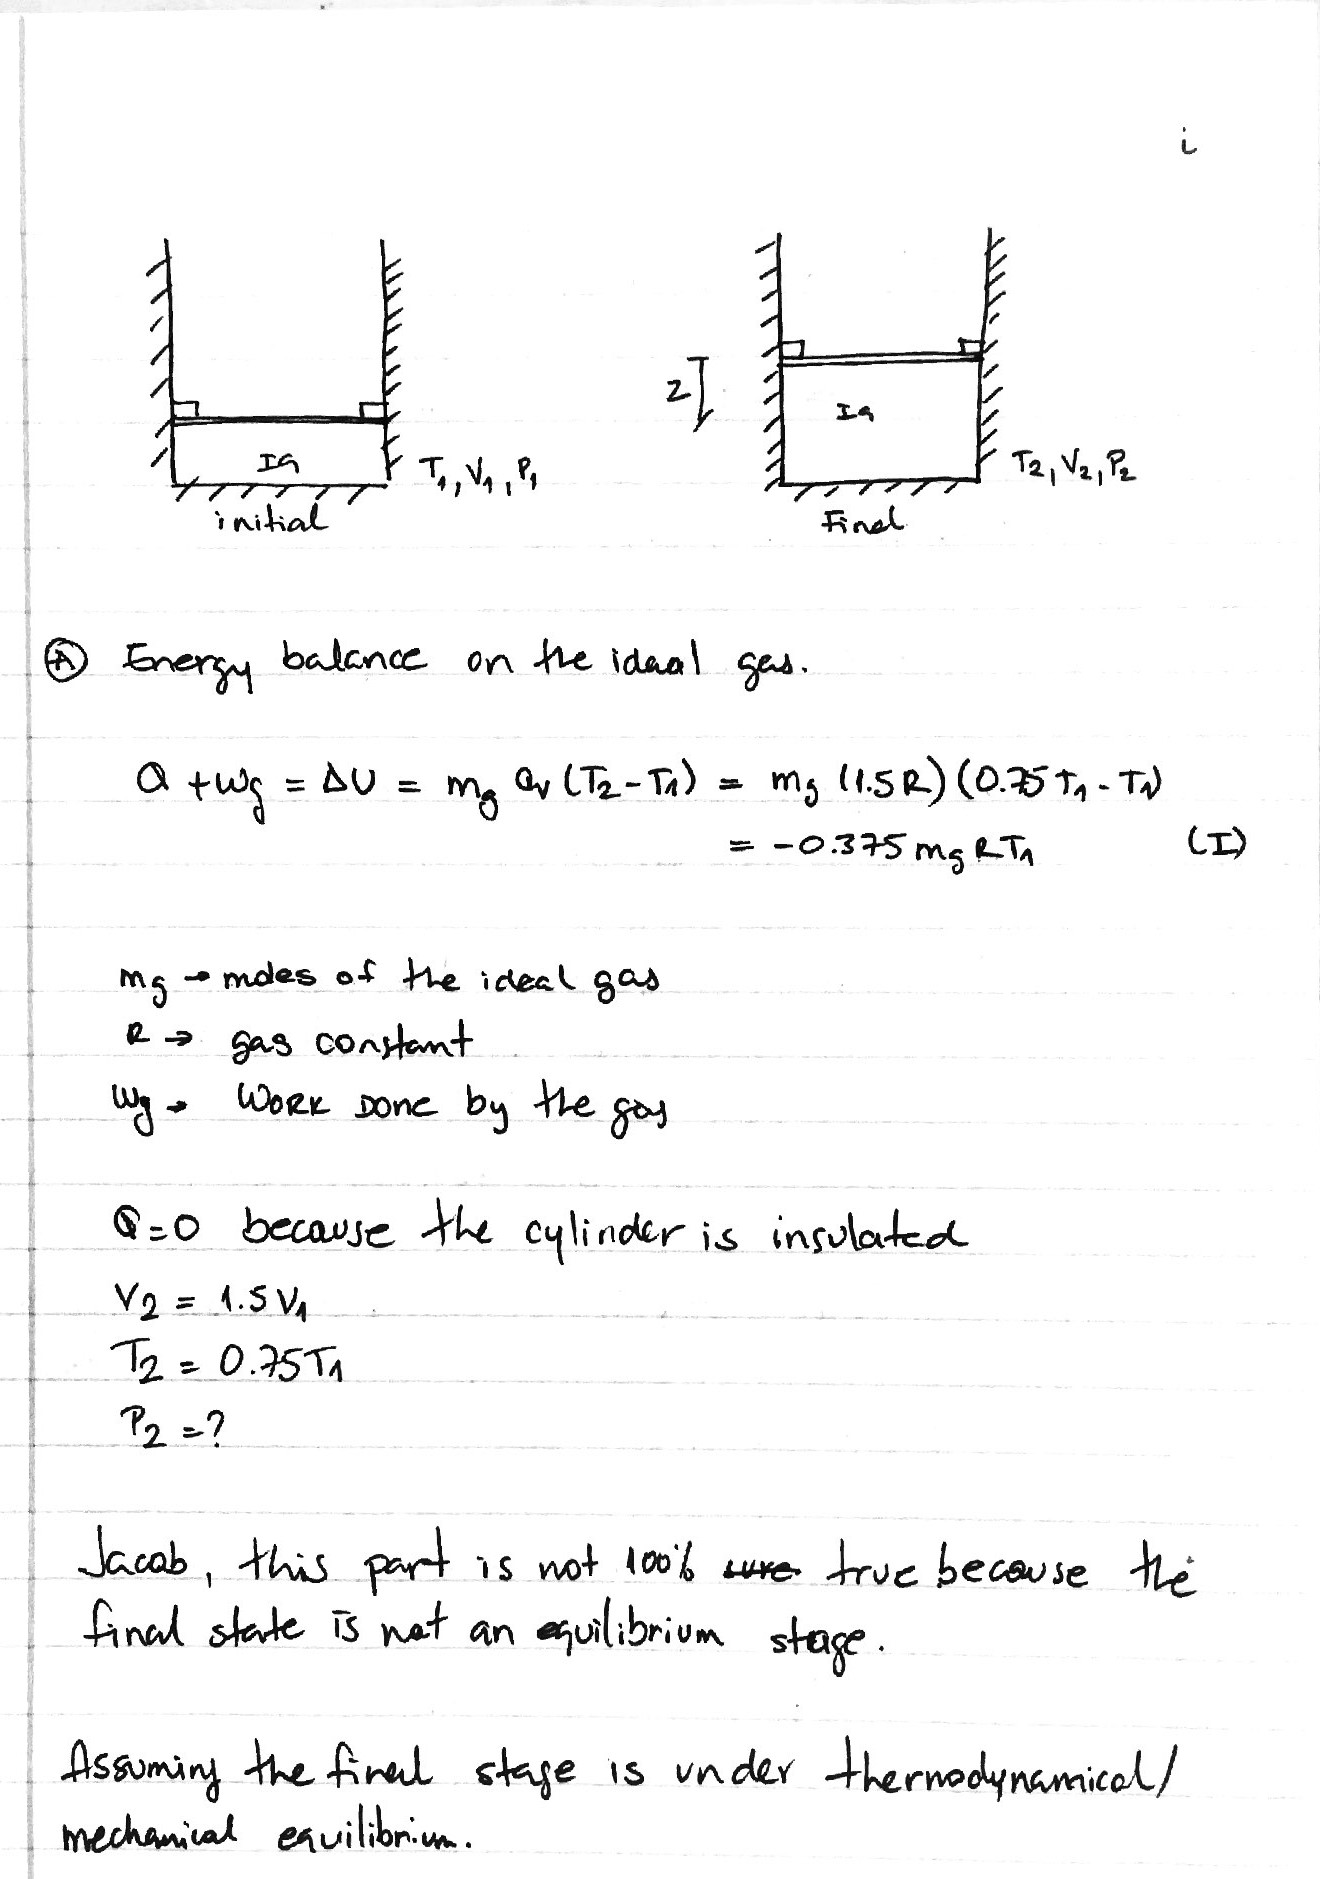 i
z
IG
IG
T1, V1, P1
T2, V2, P2
initial
Final
Ⓐ Energy balance on the ideal gas.
Q + Wg = ΔU = mg Cv (T2 - T1) = mg (1.5R) (0.75 T1 - T1)
= -0.375 mg R T1 (I)
mg → moles of the ideal gas
R → gas constant
Wg → Work Done by the gas
Q = 0 because the cylinder is insulated
V2 = 1.5 V1
T2 = 0.75 T1
P2 = ?
Jacob, this part is not 100% sure true because the
final state is not an equilibrium stage.
Assuming the final stage is under thermodynamical/
mechanical equilibrium.